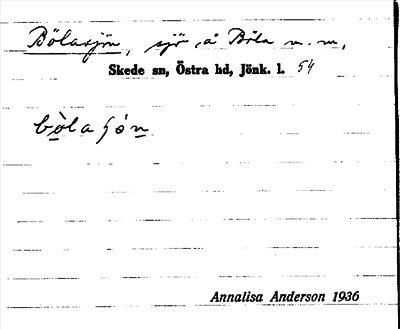 Bölasjön, sjö å Böla m. m,
Skede sn, Östra hd, Jönk. l. 54
bòlaʃón
Annalisa Anderson 1936